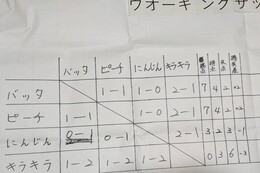 ウオーキングサッ
バッタ ピーチ にんじん キラキラ 勝点 得点 失点 得失差
バッタ 1-1 1-0 2-1 7 4 2 +2
ピーチ 1-1 1-0 2-1 7 4 2 +2
にんじん 0-1 0-1 2-1 3 2 3 -1
キラキラ 1-2 1-2 1-2 0 3 6 -3